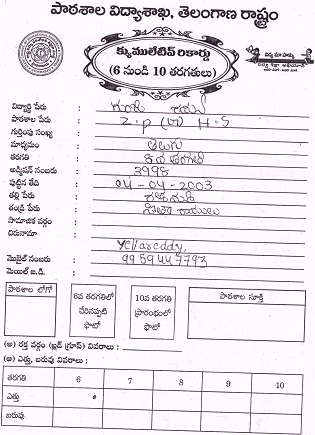 పాఠశాల విద్యాశాఖ, తెలంగాణ రాష్ట్రం
క్యుములేటివ్ రికార్డు
(6 నుండి 10 తరగతులు)
విద్యార్థి పేరు
పాఠశాల పేరు Z.P H.S
గుర్తింపు సంఖ్య
మాధ్యమం తెలుగు
తరగతి
అడ్మిషన్ నంబరు 3998
పుట్టిన తేది 04-04-2003
తల్లి పేరు
తండ్రి పేరు
సామాజిక వర్గం
చిరునామా
yellareddy,
మొబైల్ నంబరు 9959447793
మెయిల్ ఐ.డి.
పాఠశాల లోగో
6వ తరగతిలో చేరినప్పటి ఫొటో
10వ తరగతి ప్రారంభంలో ఫొటో
పాఠశాల సూక్తి
(అ) రక్త వర్గం (బ్లడ్ గ్రూప్) వివరాలు :
(ఆ) ఎత్తు, బరువు వివరాలు :
తరగతి 6 7 8 9 10
ఎత్తు
బరువు